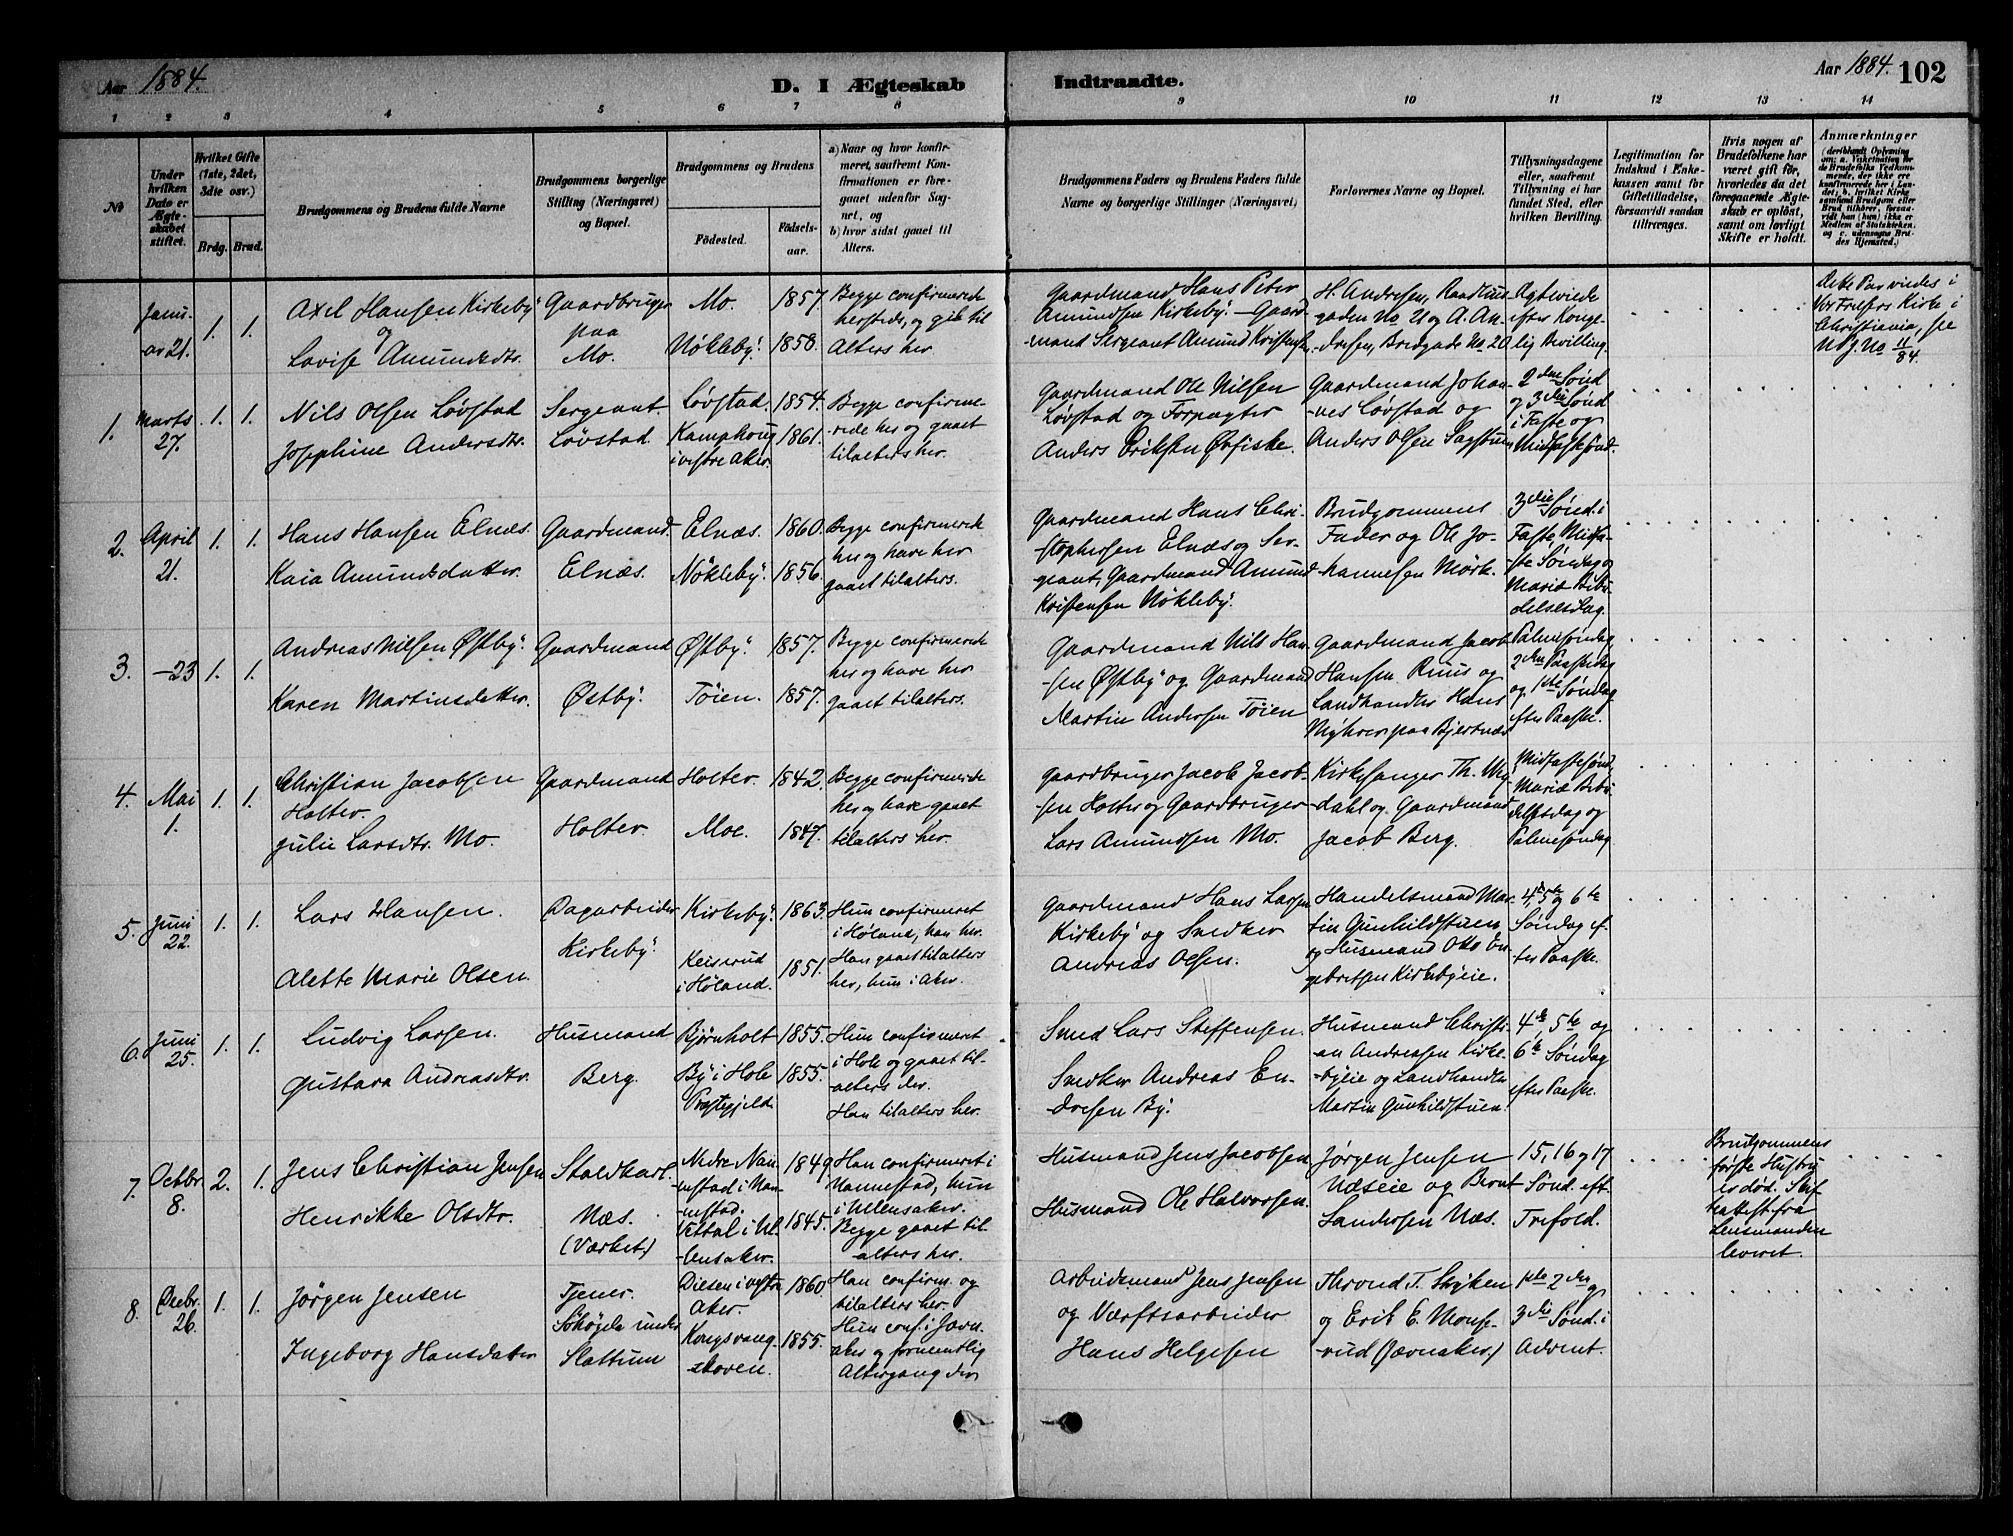 Aar 1884.
D. I Ægteskab
Indtraadte.
Aar 1884. 102
1 2 3 4 5 6 7 8 9 10 11 12 13 14
No
Under
hvilken
Dato er
Ægte-
skabet
stiftet.
Hvilket Gifte
(1ste, 2det,
3die osv.)
Brdg. Brud.
Brudgommens og Brudens fulde Navne
Brudgommens borgerlige
Stilling (Næringsvei)
og Bopæl.
Brudgommens og Brudens
Fødested.
Fødsels-
aar.
a) Naar og hvor konfir-
meret, saafremt Kon-
firmationen er fore-
gaaet udenfor Sog-
net, og
b) hvor sidst gaaet til
Alters.
Brudgommens Faders og Brudens Faders fulde
Navne og borgerlige Stillinger (Næringsvei)
Forlovernes Navne og Bopæl.
Tillysningsdagene
eller, saafremt
Tillysning ei har
fundet Sted, efter
hvilken Bevilling.
Legitimation for
Indskud i Enke-
kassen samt for
Giftetilladelse,
forsaavidt saadan
tiltrænges.
Hvis nogen af
Brudefolkene har
været gift før,
hvorledes da det
foregaaende Ægte-
skab er opløst,
samt om lovligt
Skifte er holdt.
Anmærkninger
(deriblandt Oplysning
om: a. Vaksination for
de Brudefolks Vedkom-
mende, der ikke ere
konfirmerede her i Lan-
det; b. hvilket Kirke-
samfund Brudgom eller
Brud tilhører, forsaa-
vidt han (hun) ikke er
Medlem af Statskirken,
og c. udensogns Bru-
des Hjemsted.)
Janu-
ar 21.
1. 1.
Axel Hansen Kirkeby
og
Lovise Amundsdtr.
Gaardbruger
paa
Mo.
Mo.
Nökleby.
1857.
1858.
Begge confirmerede
hersteds, og gik til
Alters her.
Gaardmand Hans Peter
Amundsen Kirkeby. – Gaard-
mand Sergeant Amund Kristensen
H. Andresen, Raadhus-
gaden No 21 og A. An-
dresen, Bredgade No 20
Ægteviede
efter Konge-
lig Bevilling.
Dette Par viedes i
Vor Frelsers Kirke i
Christiania, se
J. No 11/84.
1. Marts
27.
1. 1.
Nils Olsen Løvstad
Josephine Andersdtr.
Sergeant
Løvstad.
Løvstad.
Kamphoug
i vestre Aker.
1854.
1861.
Begge confirme-
rede her og gaaet
tilalters her.
Gaardmand Ole Nilsen
Løvstad og Forpagter
Anders Eriksen Øvfiske.
Gaardmand Johan-
nes Løvstad og
Anders Olsen Sagstuen
2den Sønd
og 3die Sønd
i Faste og
Midfastesønd.
2. April
21.
1. 1.
Hans Hansen Elnæs.
Kaia Amundsdatter.
Gaardmand
Elnæs.
Elnæs.
Nökleby.
1860.
1856.
Begge confirmerede
her og have her
gaaet tilalters.
Gaardmand Hans Chri-
stophersen Elnæs og Ser-
geant, Gaardmand Amund
Kristensen Nökleby.
Brudgommens
Fader og Ole Jo-
hannesen Mørk.
3die Sønd. i
Faste, Midfa-
ste Søndag og
Mariæ Bebu-
delsesdag.
3. –23
1. 1.
Andreas Nilsen Østby.
Karen Martinsdatter.
Gaardmand
Østby.
Østby.
Töien.
1857.
1857.
Begge confirmerede
her og have her
gaaet tilalters.
Gaardmand Nils Han-
sen Østby og Gaardmand
Martin Andersen Töien
Gaardmand Jacob
Hansen Ruus og
Landhandler Hans
Myhrer paa Bjertnæs
Palmesøndag
2den Paaskedag
og 1ste Søndag
efter Paaske.
4. Mai
1.
1. 1.
Christian Jacobsen
Holter.
Julie Larsdtr. Mo.
Gaardmand
Holter.
Holter.
Moe.
1842.
1847.
Begge confirmerede
her og have gaaet
tilalters her.
Gaardbruger Jacob Jacob-
sen Holter og Gaardbruger
Lars Amundsen Mo.
Kirkesanger Th. My-
dahl og Gaardmand
Jacob Berg.
Midfastesønd.
Mariæ Bebu-
delsesdag og
Palmesøndag
5. Juni
22.
1. 1.
Lars Hansen.
Alette Marie Olsen.
Dagarbeider
Kirkeby.
Kirkeby.
Keiserud
i Høland.
1863.
1851.
Hun confirmeret
i Høland, han her.
Han gaaet tilalters
her, hun i Aker.
Gaardmand Hans Larsen
Kirkeby og Snedker
Andreas Olsen.
Handelsmand Mar-
tin Gunhildstuen
og Husmand Otto En-
gebretsen Kirkebyeie.
4, 5 og 6te
Søndag ef-
ter Paaske.
6. Juni
25.
1. 1.
Ludvig Larsen.
Gustava Andreasdtr.
Husmand
Berg.
Bjørnholt
By i Hole
Præstegjeld.
1855.
1855.
Hun confirmeret
i Hole og gaaet til-
alters der.
Han tilalters her.
Smed Lars Steffensen.
Snedker Andreas En-
dresen By.
Husmand Christi-
an Andreasen Kirke-
byeie og Landhandler
Martin Gunhildstuen.
4de, 5te og
6te Søndag
efter Paaske.
7. Octbr
8.
2. 1.
Jens Christian Jensen
Henrikke Olsdtr.
Staldkarl.
Næs.
(Værket)
Nedre Nan-
nestad i Nan-
nestad.
i Ul-
lensaker.
1849
1845.
Han confirmeret i
Nannestad, hun
i Ullensaker.
Begge gaaet til-
alters her.
Husmand Jens Jacobsen
Husmand Ole Halvorsen.
Jørgen Jensen
Næseie og Bernt
Sandersen Næs.
15, 16 og 17
Sønd. eft.
Trefold.
Brudgommens
første Hustru
er død. Skif-
teattest fra
Lensmanden
leveret.
8. Decbr.
26.
1. 1.
Jörgen Jensen
Ingeborg Hansdatter
Tjener.
under
Slattum
Diesen i vestre
Aker.
Kongsvang-
skoven.
1860.
1855.
Han confirm. og
tilalters her.
Hun conf. i Jævn-
aker og formentlig
Altergang der
Arbeidsmand Jens Jensen
og Værftsarbeider
Hans Helgesen
Thrond T. Skyken
og Erik E. Monse-
rud (Jævnaker.)
1ste 2den og
3die Sønd. i
Advent.